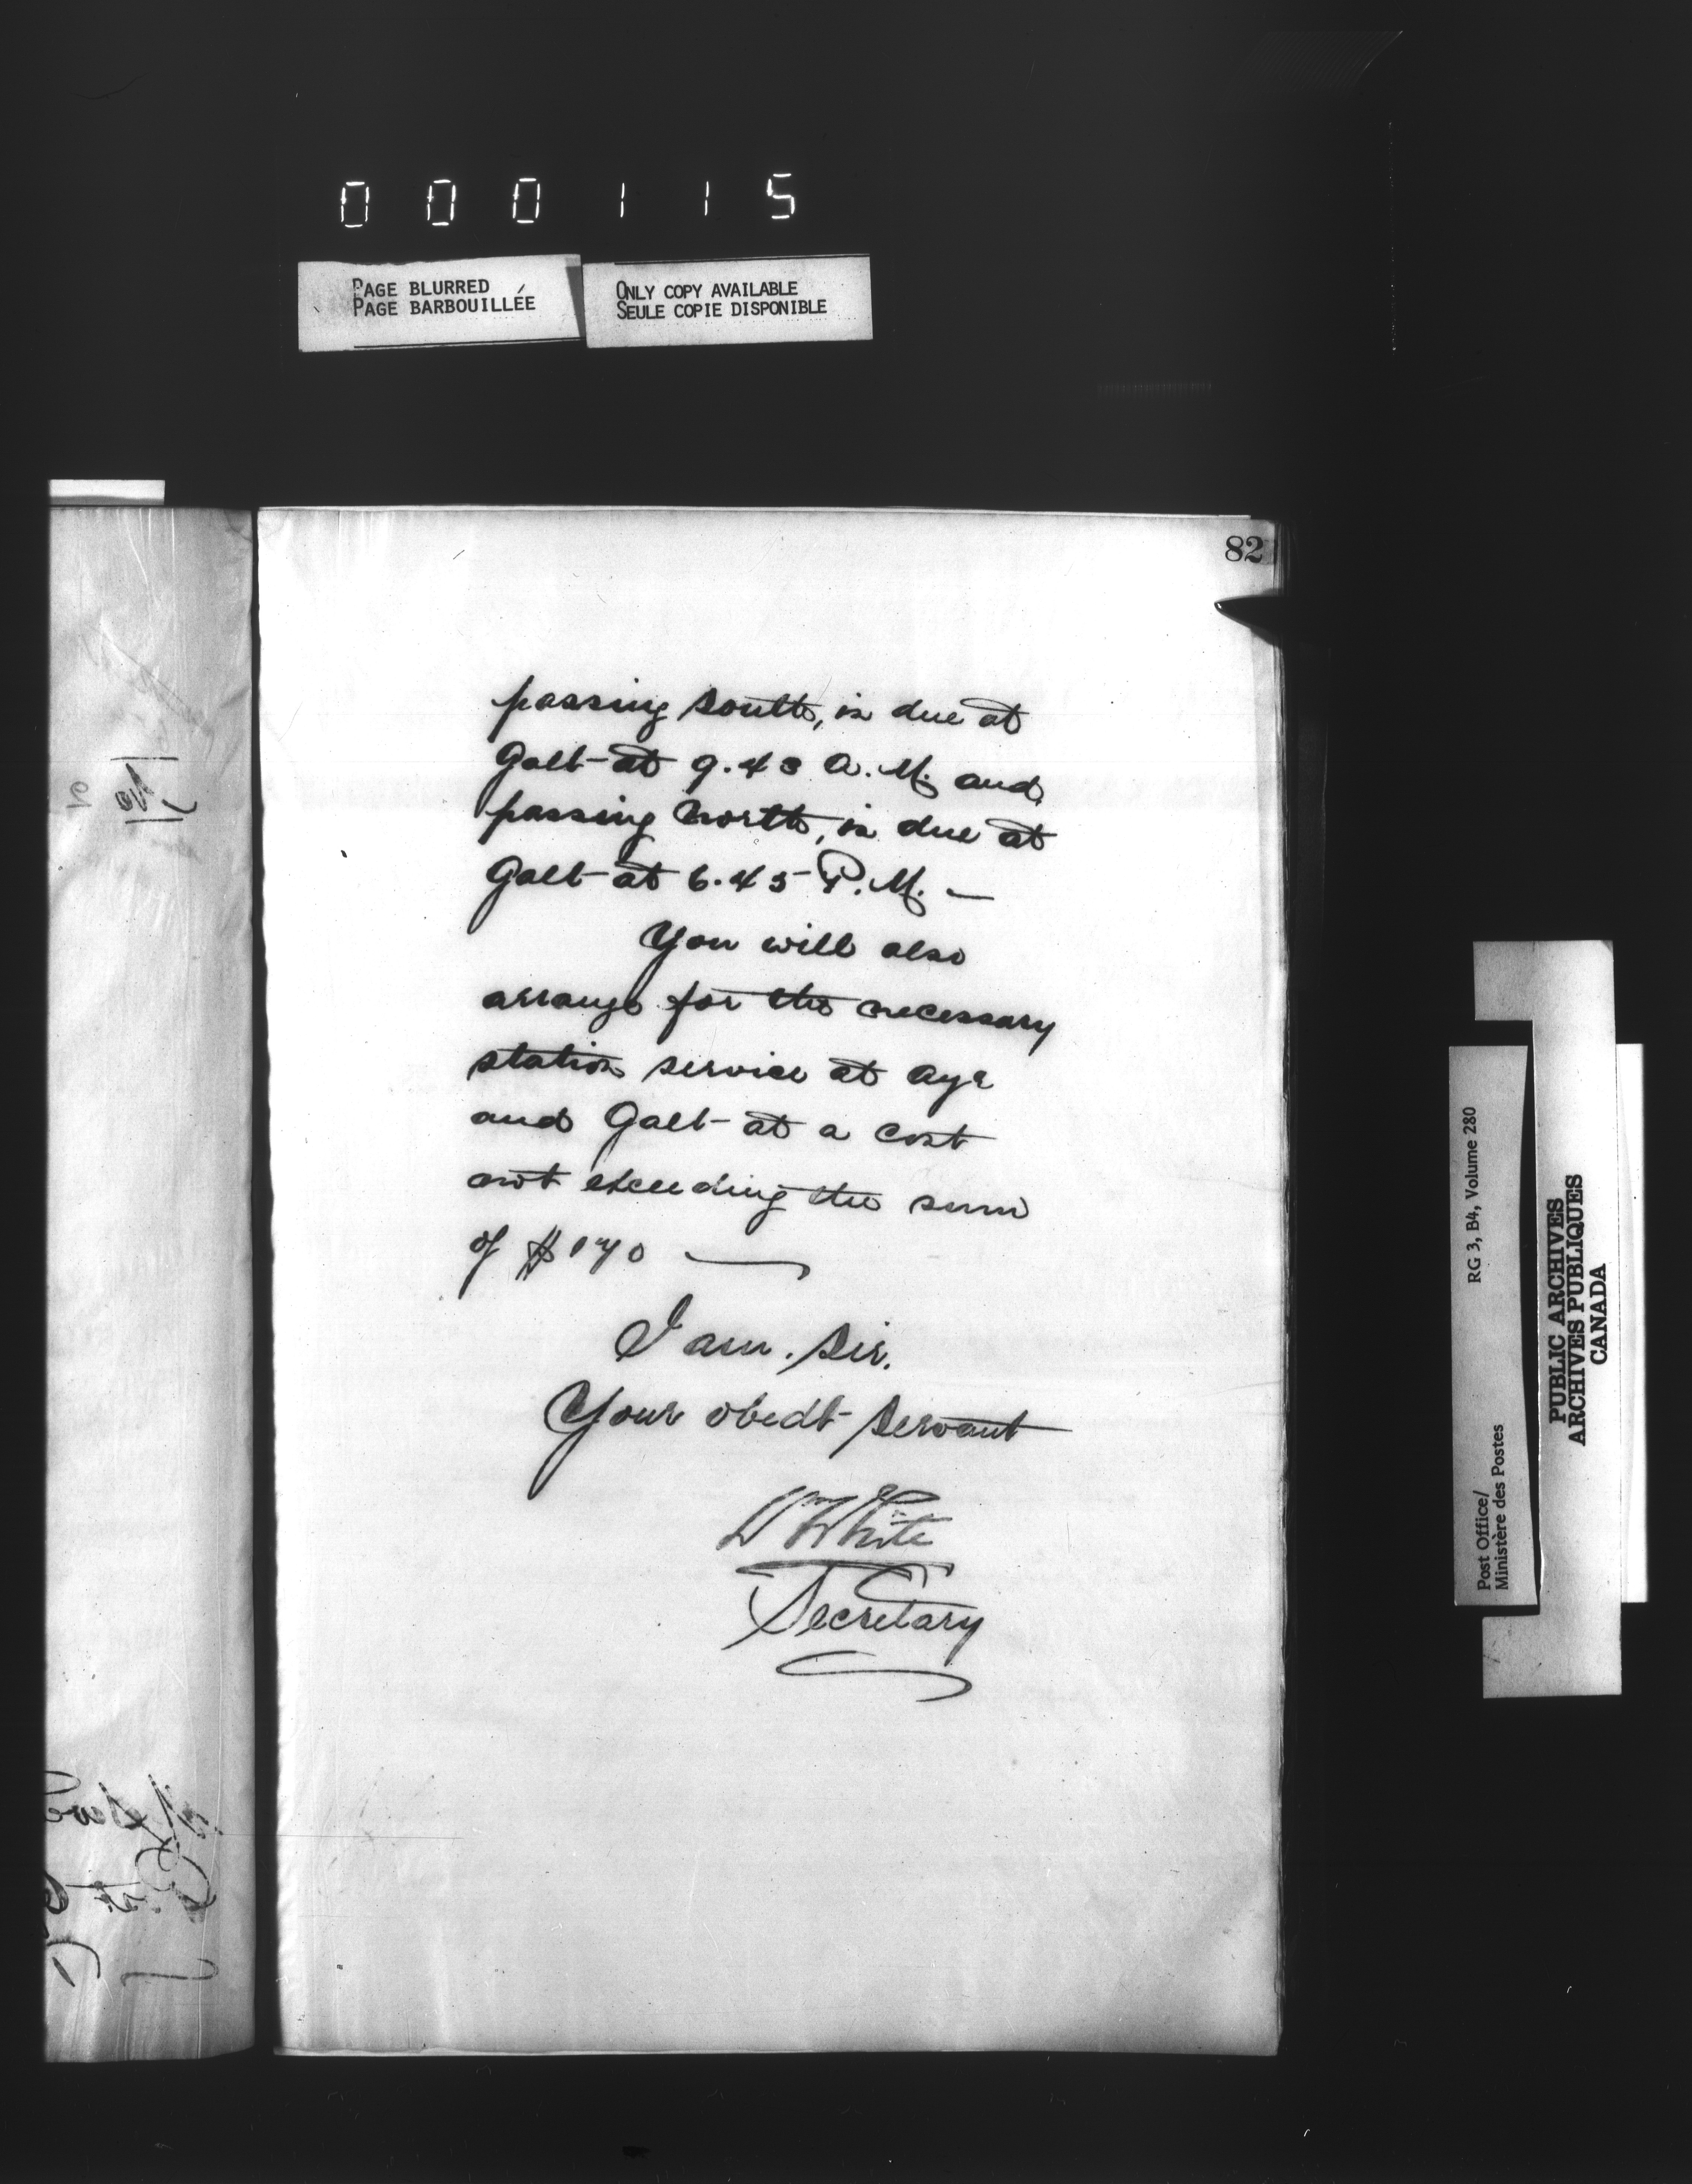 000115
PAGE BLURRED
PAGE BARBOUILLÉE
ONLY COPY AVAILABLE
SEULE COPIE DISPONIBLE
82
passing south, is due at
Galt at 9.43 A.M. and
passing north, is due at
Galt at 6.45 P.M. —
You will also
arrange for the necessary
station service at Ayr
and Galt at a cost
not exceeding the sum
of $170 —
I am. Sir.
Your obedt servant
Wm White
Secretary
Post Office/
Ministère des Postes
RG 3, B4, Volume 280
PUBLIC ARCHIVES
ARCHIVES PUBLIQUES
CANADA